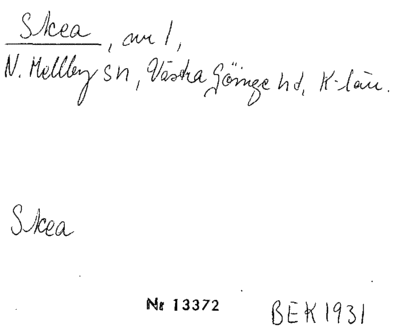 Skea, nr 1,
N. Mellby sn, Västra Göinge hd, K-län.
Skea
Nr 13372
BEK 1931